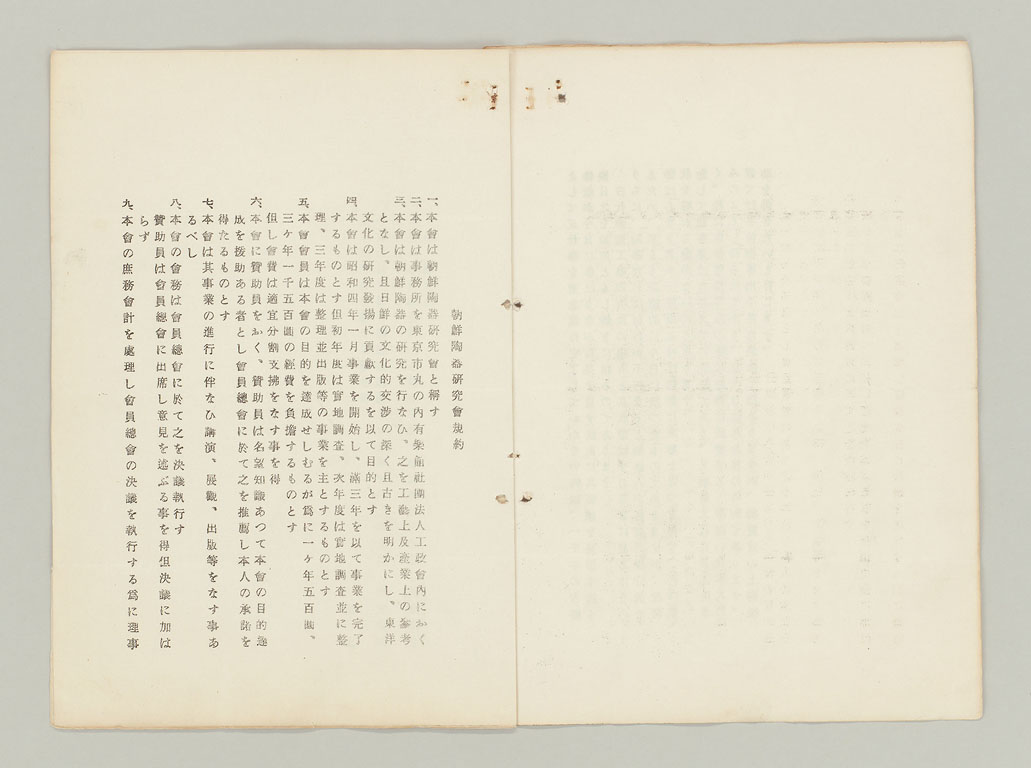 朝鮮陶器研究會規約
一、本會は朝鮮陶器研究會と稱す
二、本會は事務所を東京市丸の内有樂館社團法人工政會内におく
三、本會は朝鮮陶器の研究を行なひ、之を工藝上及産業上の參考
となし、且日鮮の文化的交渉の深く且古きを明かにし、東洋
文化の研究發揚に貢獻するを以て目的とす
四、本會は昭和四年一月事業を開始し、滿三年を以て事業を完了
するものとす但初年度は實地調査、次年度は實地調査並に整
理、三年度は整理並出版等の事業を主とするものとす
五、本會會員は本會の目的を達成せしむるが爲に一ヶ年五百圓、
三ヶ年一千五百圓の經費を負擔するものとす
但し會費は適宜分割支拂をなす事を得
六、本會に贊助員をおく、贊助員は名望知識あつて本會の目的達
成を援助ある者とし會員總會に於て之を推薦し本人の承諾を
得たるものとす
七、本會は其事業の進行に伴なひ講演、展觀、出版等をなす事あ
るべし
八、本會の會務は會員總會に於て之を決議執行す
贊助員は會員總會に出席し意見を述ぶる事を得但決議に加は
らず
九、本會の庶務會計を處理し會員總會の決議を執行する爲に理事